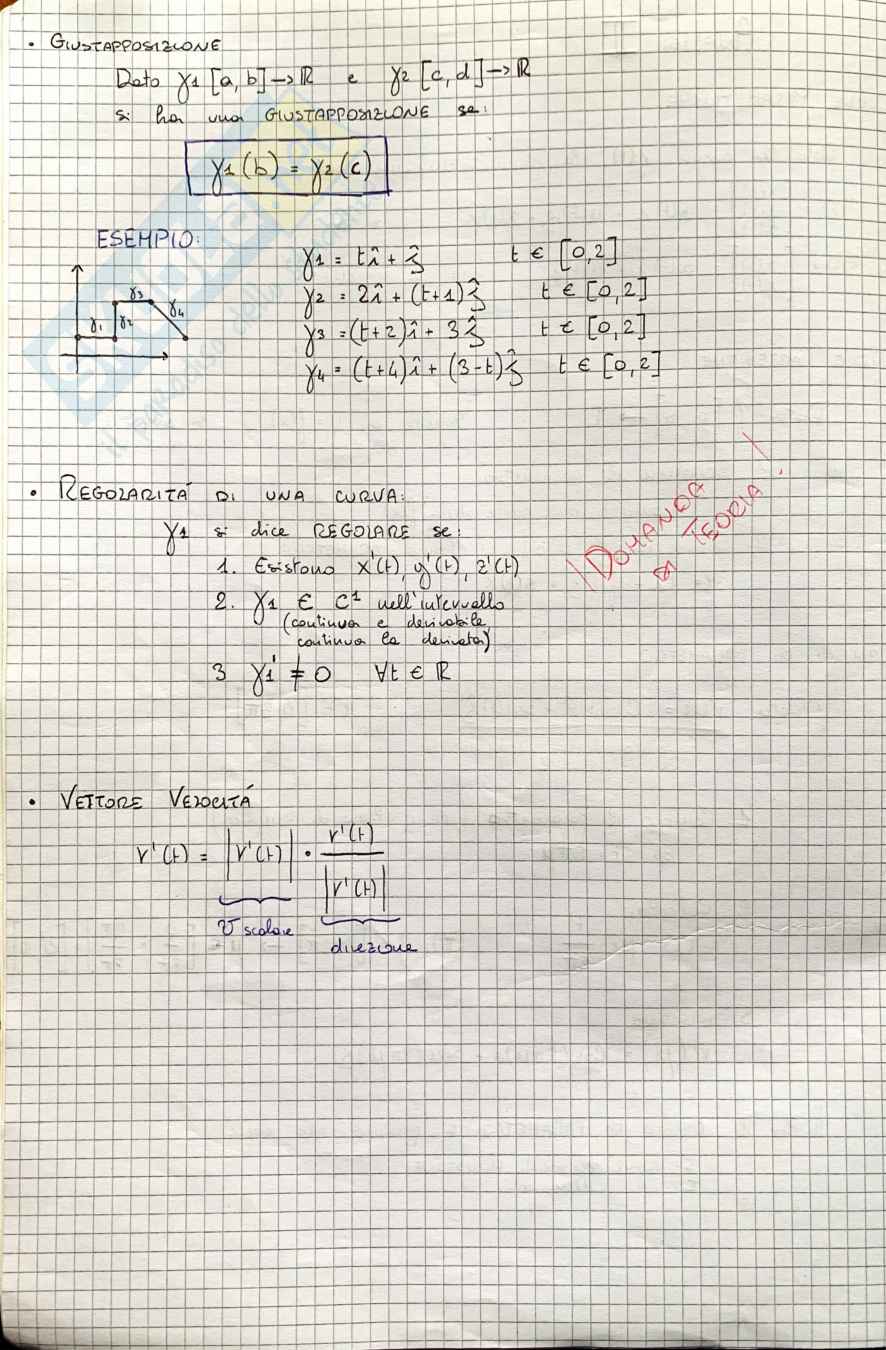 • GIUSTAPPOSIZIONE
Dato γ1 [a, b] → ℝ e γ2 [c, d] → ℝ
si ha una GIUSTAPPOSIZIONE se:
γ1(b) = γ2(c)
ESEMPIO:
γ1 = tî + ĵ t ∈ [0,2]
γ2 = 2î + (t+1)ĵ t ∈ [0,2]
γ3 = (t+2)î + 3ĵ t ∈ [0,2]
γ4 = (t+4)î + (3-t)ĵ t ∈ [0,2]
γ1 γ2 γ3 γ4
SKUOLA.net
il paradiso dello studente
• REGOLARITÁ DI UNA CURVA:
γ1 si dice REGOLARE se:
1. Esistono x'(t), y'(t), z'(t)
2. γ1 ∈ C¹ nell'intervallo
(continua e derivabile
continua la derivata)
3 γ1' ≠ 0 ∀t ∈ ℝ
! DOMANDA
DI TEORIA !
• VETTORE VELOCITÁ
r'(t) = |r'(t)| • r'(t) / |r'(t)|
v scalare
direzione